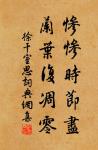 慘慘時節盡
蘭葉復凋零
徐干室思詞典網集